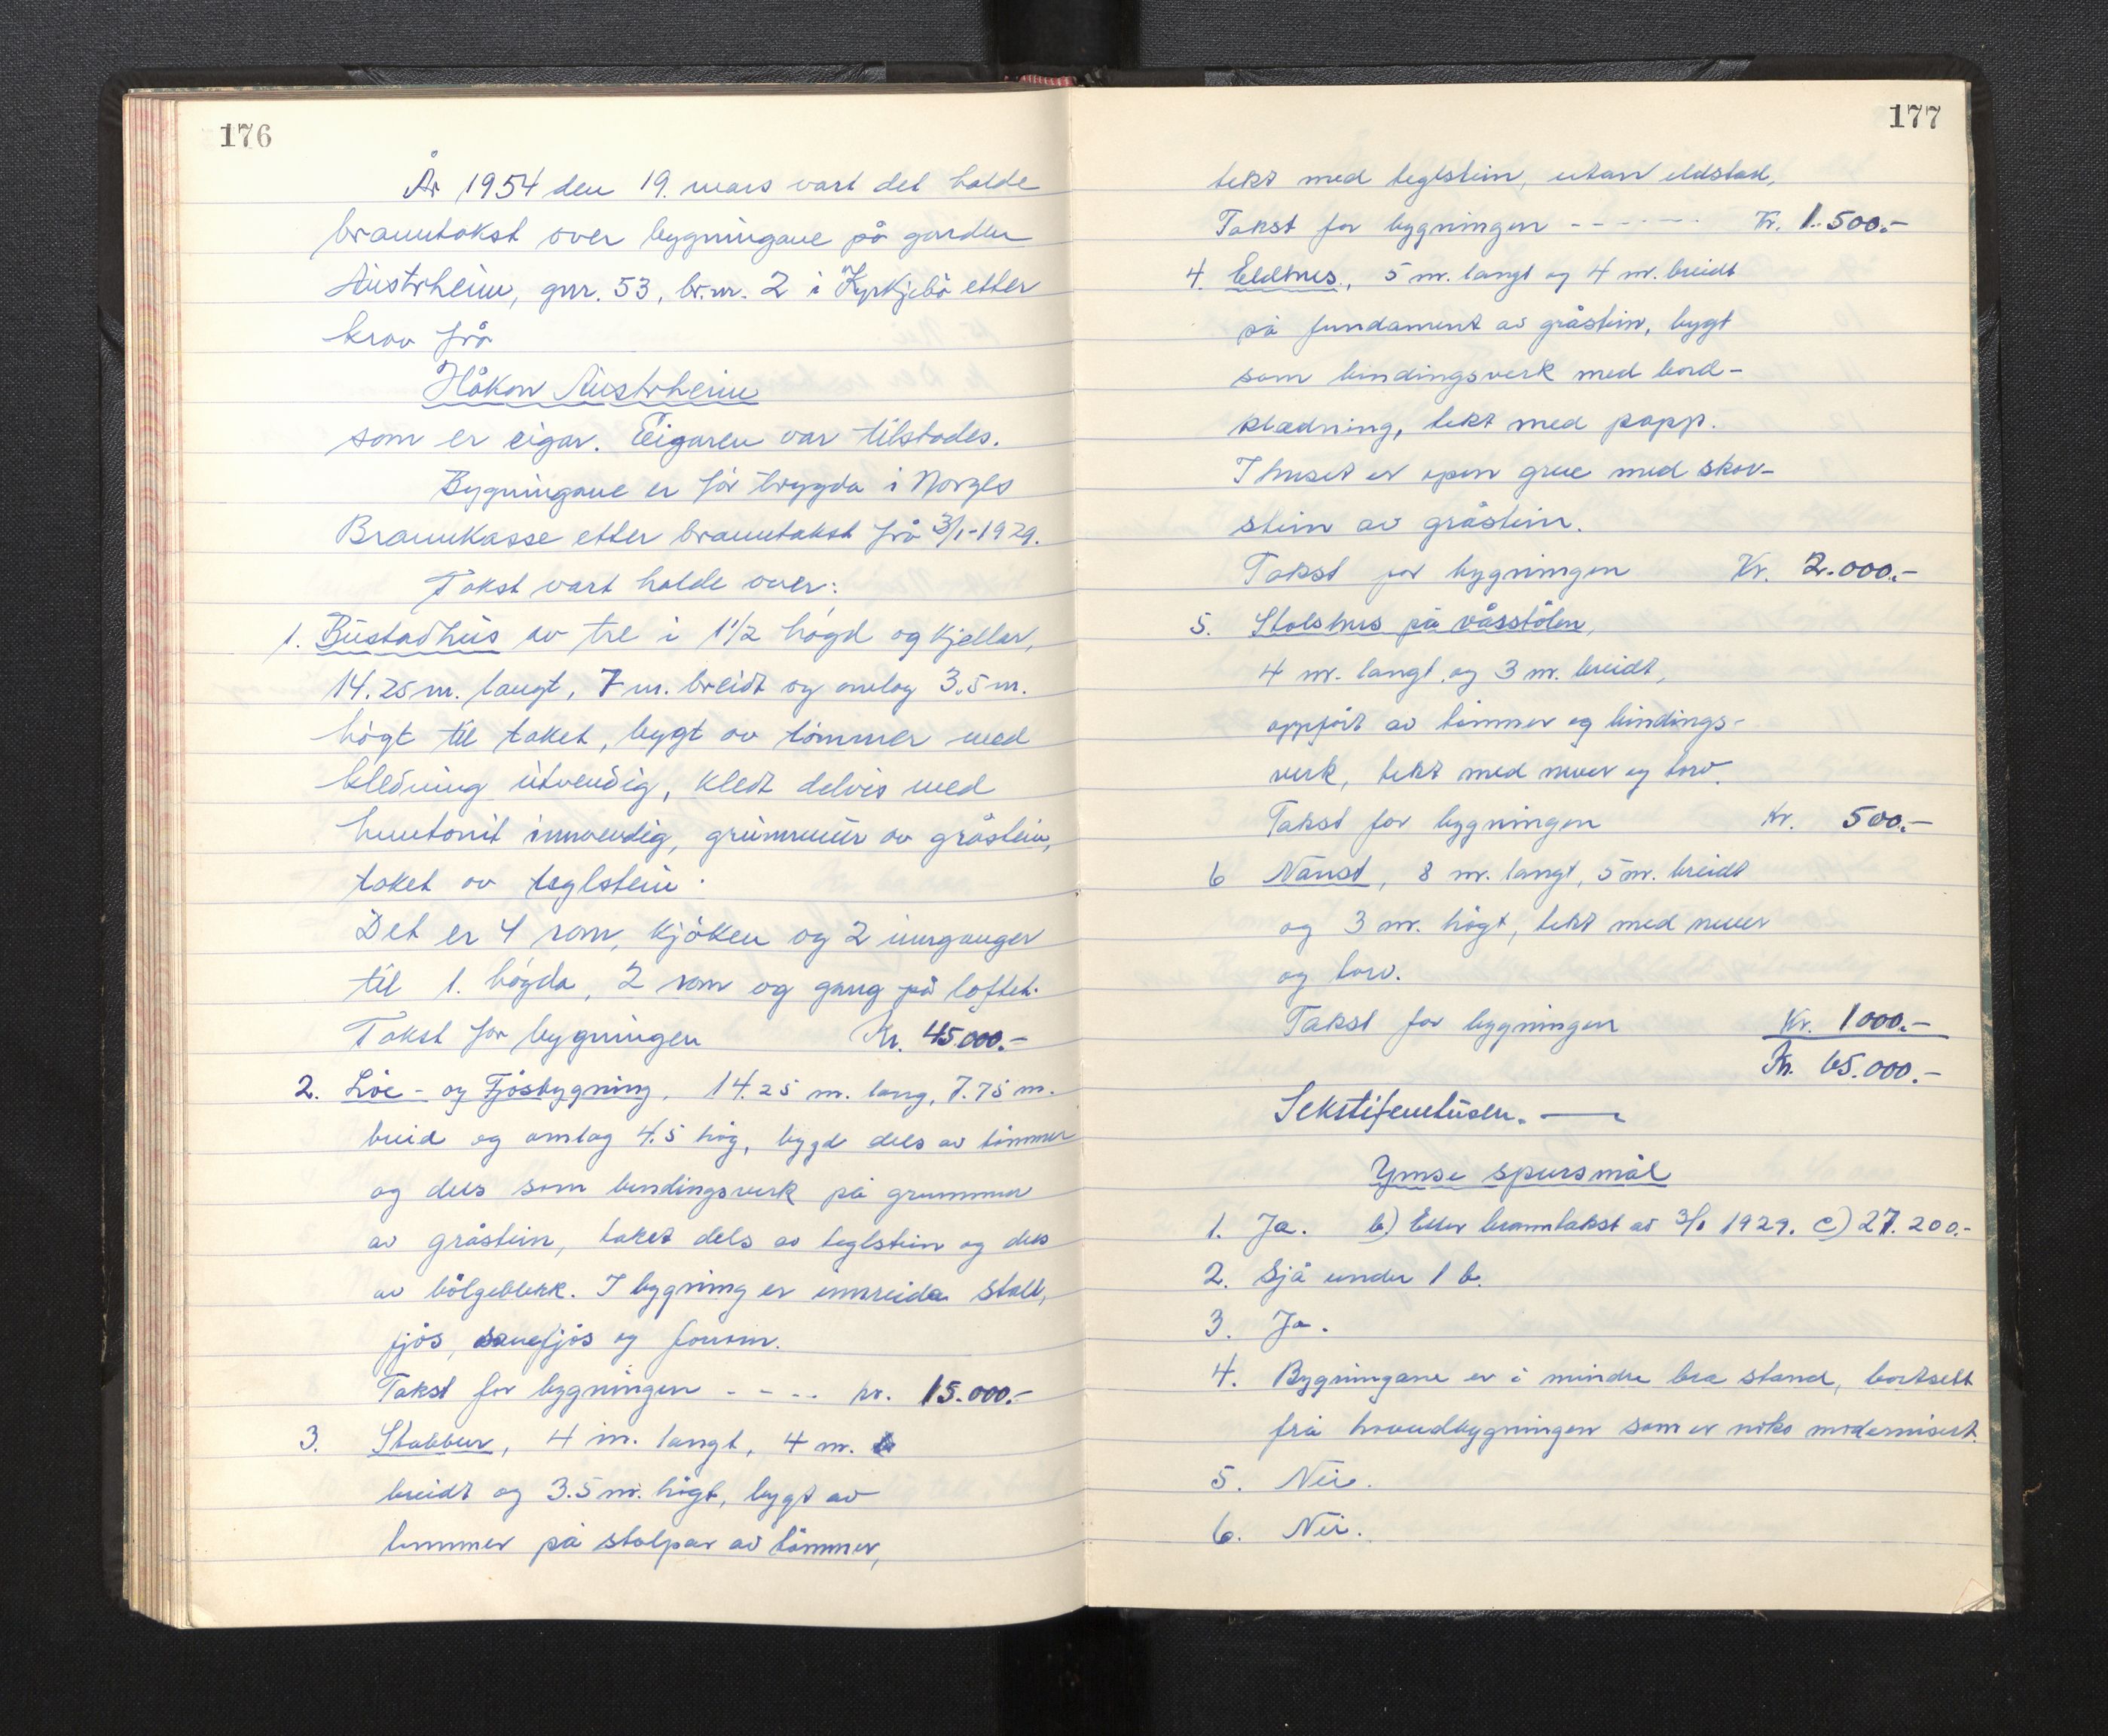 176
År 1954 den 19. mars vart det halde
branntakst over bygningane på garden
Austrheim, gnr. 53, br.nr. 2 i Kyrkjebö etter
krav frå
Håkon Austrheim
som er eigar. Eigaren var tilstades.
Bygningane er för trygda i Norges
Brannkasse etter branntakst frå 3/1-1929.
Takst vart halde over:
1. Bustadhus av tre i 1 1/2 högd og kjellar,
14.25 m. langt, 7 m. breidt og omlag 3.5 m.
högt til taket, bygt av tömmer med
kledning utvendig, kledt delvis med
huntonit innvendig, grunnmur av gråstein,
taket av teglstein.
Det er 4 rom, kjöken og 2 innganger
til 1. högda, 2 rom og gang på loftet.
Takst for bygningen Kr. 45.000.-
2. Löe- og Fjösbygning, 14.25 m. lang, 7.75 m.
breid og omlag 4.5 hög, bygd dels av tömmer
og dels som bindingsverk på grunnmur
av gråstein, taket dels av teglstein og dels
av bölgeblekk. I bygning er innreida stall,
fjös, sauefjös og forrom.
Takst for bygningen - - - - kr. 15.000.-
3. Stabbur, 4 m. langt, 4 m.
breidt og 3.5 m. högt, bygt av
tømmer på stolpar av tömmer,
177
tekt med teglstein, utan eldstad,
Takst for bygningen - - - - - - Kr. 1.500.-
4. Eldhus, 5 m. langt og 4 m. breidt
på fundament av gråstein, bygt
som bindingsverk med bord-
klædning, tekt med papp.
I huset er open grue med skor-
stein av gråstein.
Takst for bygningen Kr. 2.000.-
5. Stolshus på våsstölen,
4 m. langt og 3 m. breidt,
oppfört av tömmer og bindings-
verk, tekt med never og torv.
Takst for bygningen Kr. 500.-
6 Naust, 8 m. langt, 5 m. breidt
og 3 m. högt, tekt med never
og torv.
Takst for bygningen Kr. 1000.-
Kr. 65.000.-
Sekstifemtusen. —
Ymse spursmål
1. Ja. b) Etter branntakst av 3/1 1929. c) 27.200.-
2. Sjå under 1 b.
3. Ja.
4. Bygningane er i mindre bra stand, bortsett
frå hovudbygningen som er noko modernisert.
5. Nei.
6. Nei.